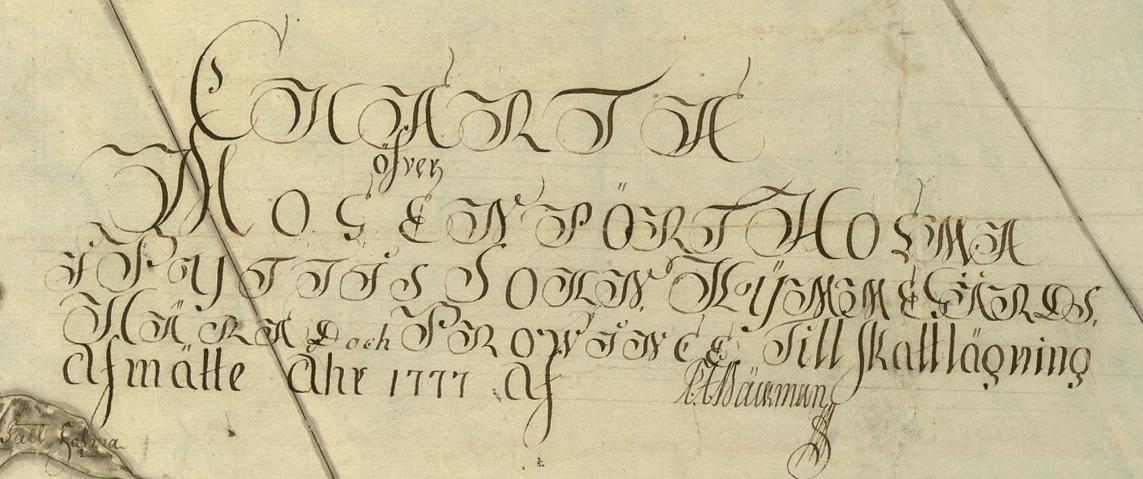 CHARTA
öfver
MOGENPÖRT HOLMA
i PYTTIS SOKN. KŸMMEGÅRDS.
HÄRAD och PROWINCE Till Skattlägning
Afmätte Åhr 1777 Af Bäckman
holma